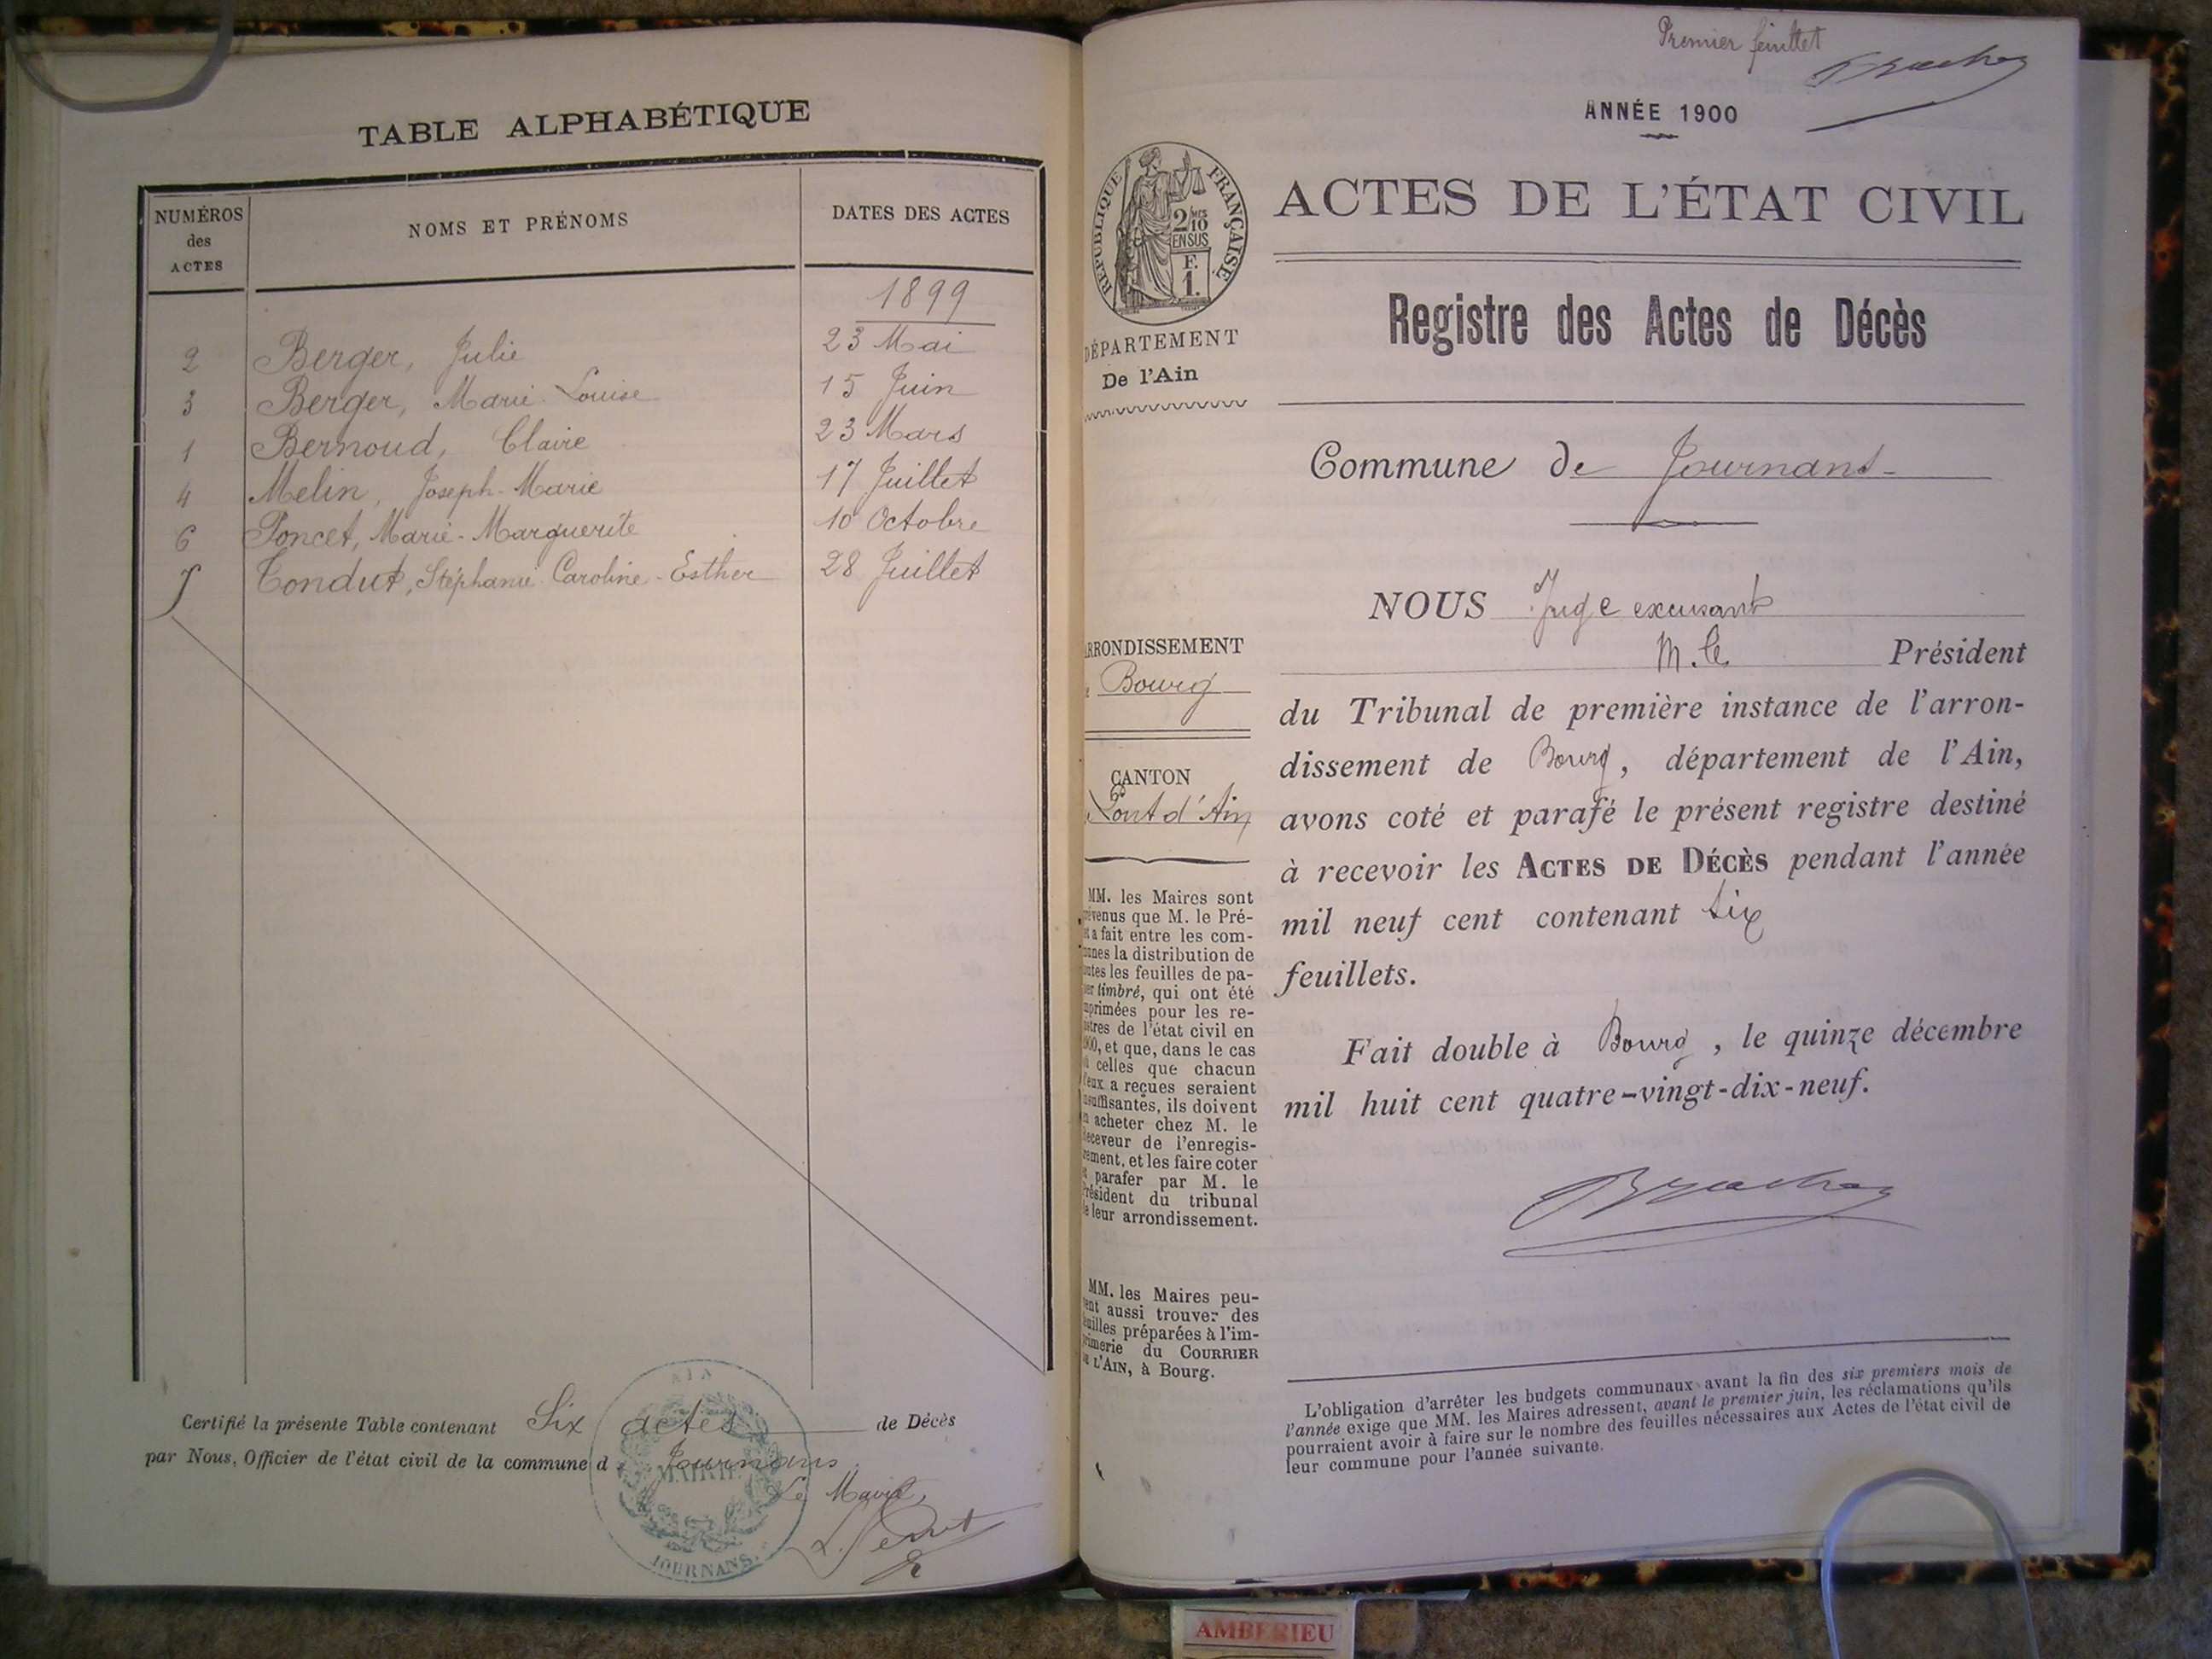 TABLE ALPHABÉTIQUE
NUMÉROS des ACTES
NOMS ET PRÉNOMS
DATES DES ACTES
1899
2 Berger, Julie 23 Mai
3 Berger, Marie-Louise 15 Juin
1 Bernoud, Claire 23 Mars
4 Melin, Joseph-Marie 17 Juillet
6 Poncet, Marie-Marguerite 10 Octobre
5 Tondut, Stéphanie-Caroline-Esther 28 Juillet
Certifié la présente Table contenant Six actes de Décès
par Nous, Officier de l'état civil de la commune d Journans
Le Maire,
AIN
MAIRIE
JOURNANS
Premier feuillet
ANNÉE 1900
RÉPUBLIQUE FRANÇAISE
2/10
EN SUS
F.
1.
ACTES DE L'ÉTAT CIVIL
Registre des Actes de Décès
DÉPARTEMENT
De l'Ain
Commune de Journans
NOUS Juge excusant
M. le Président
du Tribunal de première instance de l'arron-
dissement de Bourg, département de l'Ain,
avons coté et parafé le présent registre destiné
à recevoir les ACTES DE DÉCÈS pendant l'année
mil neuf cent contenant six
feuillets.
Fait double à Bourg, le quinze décembre
mil huit cent quatre-vingt-dix-neuf.
ARRONDISSEMENT
Bourg
CANTON
Pont d'Ain
MM. les Maires sont
prévenus que M. le Pré-
fet a fait entre les com-
munes la distribution de
toutes les feuilles de pa-
pier timbré, qui ont été
imprimées pour les re-
gistres de l'état civil en
1900, et que, dans le cas
où celles que chacun
d'eux a reçues seraient
insuffisantes, ils doivent
en acheter chez M. le
Receveur de l'enregis-
trement, et les faire coter
et parafer par M. le
Président du tribunal
de leur arrondissement.
MM. les Maires peu-
vent aussi trouver des
feuilles préparées à l'im-
primerie du COURRIER
DE L'AIN, à Bourg.
L'obligation d'arrêter les budgets communaux avant la fin des six premiers mois de
l'année exige que MM. les Maires adressent, avant le premier juin, les réclamations qu'ils
pourraient avoir à faire sur le nombre des feuilles nécessaires aux Actes de l'état civil de
leur commune pour l'année suivante.
AMBERIEU